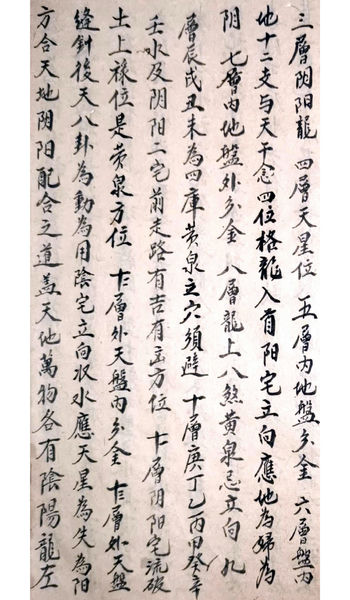 三層阴阳龍 四層天星位 五層内地盤分金 六層盤内
地十二支与天干念四位格龍入首阳宅立向應地為婦為
阴 七層内地盤外分金 八層龍上八煞黄泉忌立向 九
層辰戌丑未為四庫黄泉之穴須避 十層庚丁乙丙甲癸辛
壬水及阴阳二宅前走路有吉有凶方位 十一層阴阳宅流破
土上禄位是黄泉方位 十二層外天盤内分金 十三層外天盤
縫針後天八卦為動為用陰宅立向収水應天星為夫為阳
方合天地阴阳配合之道盖天地萬物各有陰陽龍左